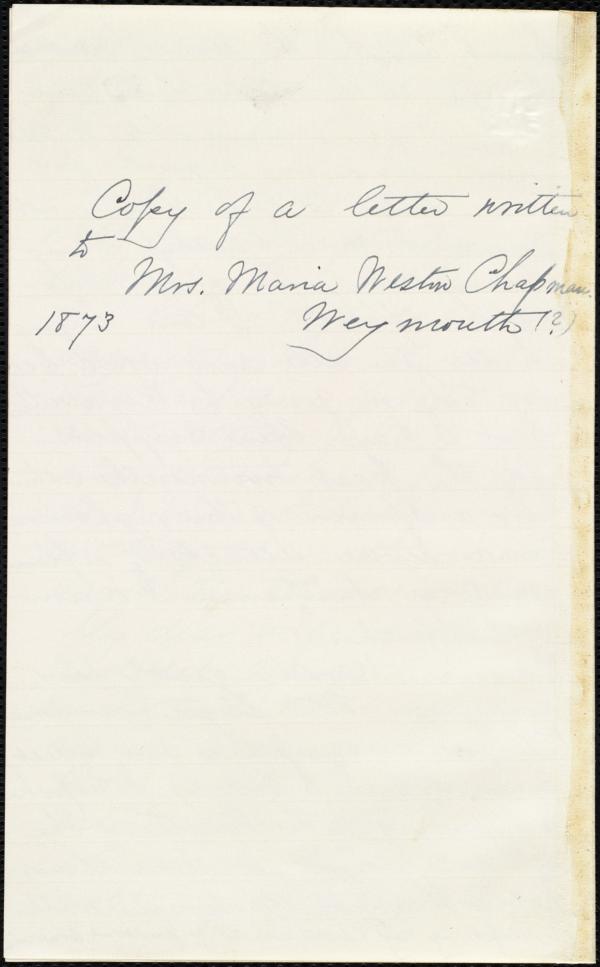 Copy of a letter written
to
Mrs. Maria Weston Chapman.
1873 Weymouth (?)